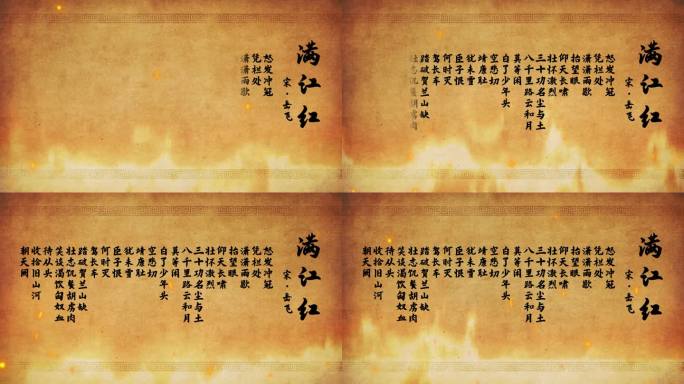 满江红
宋·岳飞
怒发冲冠
凭栏处
潇潇雨歇
满江红
宋·岳飞
怒发冲冠
凭栏处
潇潇雨歇
抬望眼
仰天长啸
壮怀激烈
三十功名尘与土
八千里路云和月
莫等闲
白了少年头
空悲切
靖康耻
犹未雪
臣子恨
何时灭
驾长车
踏破贺兰山缺
壮志饥餐胡虏肉
满江红
宋·岳飞
怒发冲冠
凭栏处
潇潇雨歇
抬望眼
仰天长啸
壮怀激烈
三十功名尘与土
八千里路云和月
莫等闲
白了少年头
空悲切
靖康耻
犹未雪
臣子恨
何时灭
驾长车
踏破贺兰山缺
壮志饥餐胡虏肉
笑谈渴饮匈奴血
待从头
收拾旧山河
朝天阙
满江红
宋·岳飞
怒发冲冠
凭栏处
潇潇雨歇
抬望眼
仰天长啸
壮怀激烈
三十功名尘与土
八千里路云和月
莫等闲
白了少年头
空悲切
靖康耻
犹未雪
臣子恨
何时灭
驾长车
踏破贺兰山缺
壮志饥餐胡虏肉
笑谈渴饮匈奴血
待从头
收拾旧山河
朝天阙